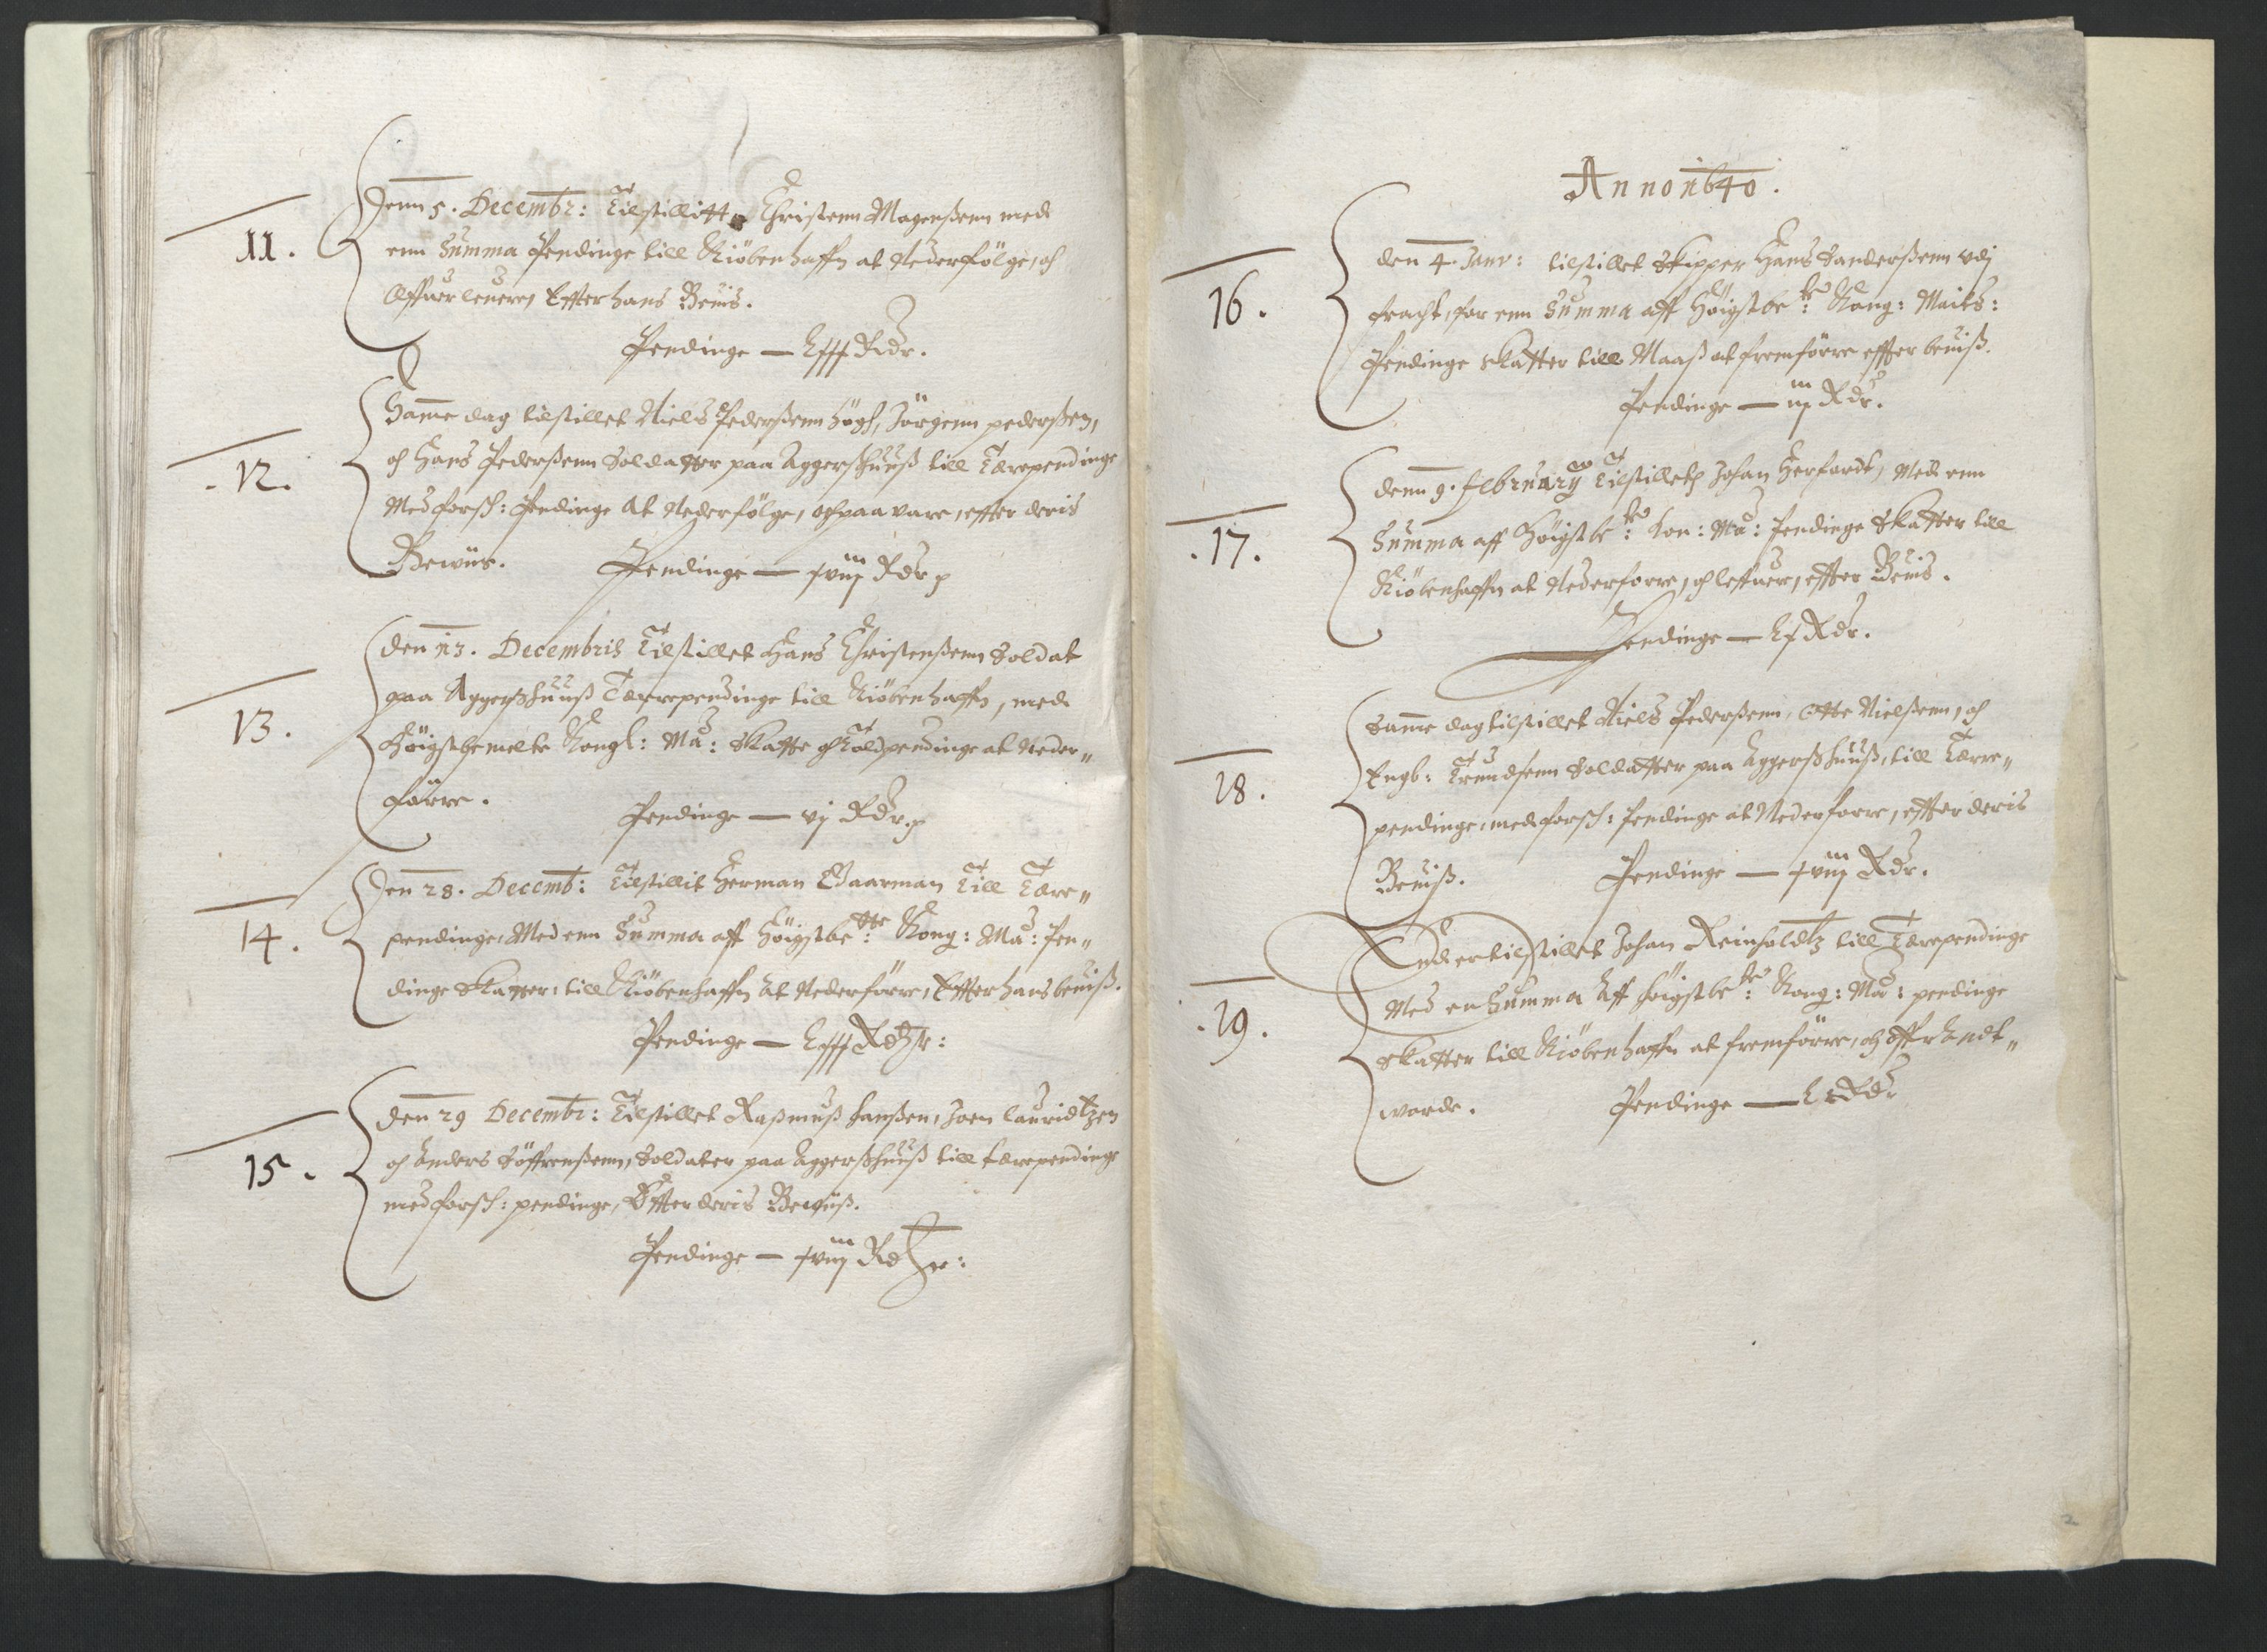 11.
Denn 5. Decembr: Tilstillitt Christenn Mogenßenn med
enn Summa Pendinge till Kiöbenhaffn at Nederfölge, och
Offuer leuere, Effter hans Beuis.
Pendinge — Lxxx Rdr.
12.
Samme dag tilstillet Niels Pederßenn Högh, Jörgenn pederßen,
och Hans Pederßenn Soldatter paa Aggerßhuuß till Tærependinge
Med forsch: Pendinge At Nederfölge, och paa vare, effter deris
Bewiis. Pendinge — xviij Rdr
13.
Den 13. Decembris Tilstillet Hans Christenßenn Soldat
paa Aggerßhuuß Tærrependinge till Kiöbenhaffn, med
Höigstbemelte Kongl: Ma: Skatte och Toldpendinge at Neder„
förre.
Pendinge — vj Rdr.
14.
Den 28. Decemb: Tilstillit Herman Gaarman Till Tære„
pendinge, Med enn Summa aff Höigstbe:tte Kong: Ma: Pen„
dinge Skatter, till Kiöbenhaffn At Nederförre, Effter hans beuiß.
Pendinge — Lxxx Rdlr:
15.
Den 29 Decembr: Tilstillet Raßmuß Hanßen, Joen lauridtzen
och Anders Söffrenßenn, Soldater paa Aggerßhuuß till tærependinge
med forsch: pendinge, Effter deris Bewiiß.
Pendinge — xviij Rdlr:
Anno 1640.
16.
Den 4. Janv: tilstillet Skipper Hans Sanderßenn vdj
fracht, for enn Summa aff Höigstbe:te Kong: Maits:
Pendinge skatter till Maaß at fremförre effter beuiß.
Pendinge — iij Rdr.
17.
Denn 9. February Tilstillet Johan Herfordt, Med enn
Summa aff Höigstbe:te Kon: Ma: Pendinge Skatter till
Kiöbenhaffn at Nederforre, och leffuere, effter Beuis.
Pendinge — Lx Rdr.
18.
Samme dag tilstillet Niels Pederßenn, Otte Nielßenn, och
Engb: Trundsenn Soldatter paa Aggerßhuuß, till Tærre„
pendinge, med forsch: Pendinge at Nederforre, effter deris
Beuiß. Pendinge — xviij Rdr.
19.
Endertilstillet Johan Reinholdtz till Tærependinge
Med en Summa Aff höigstbe:te Kong: Ma: pendinge
Skatter till Kiöbenhaffn at fremförre, och offr Andt„
worde. Pendinge — Rdr
2